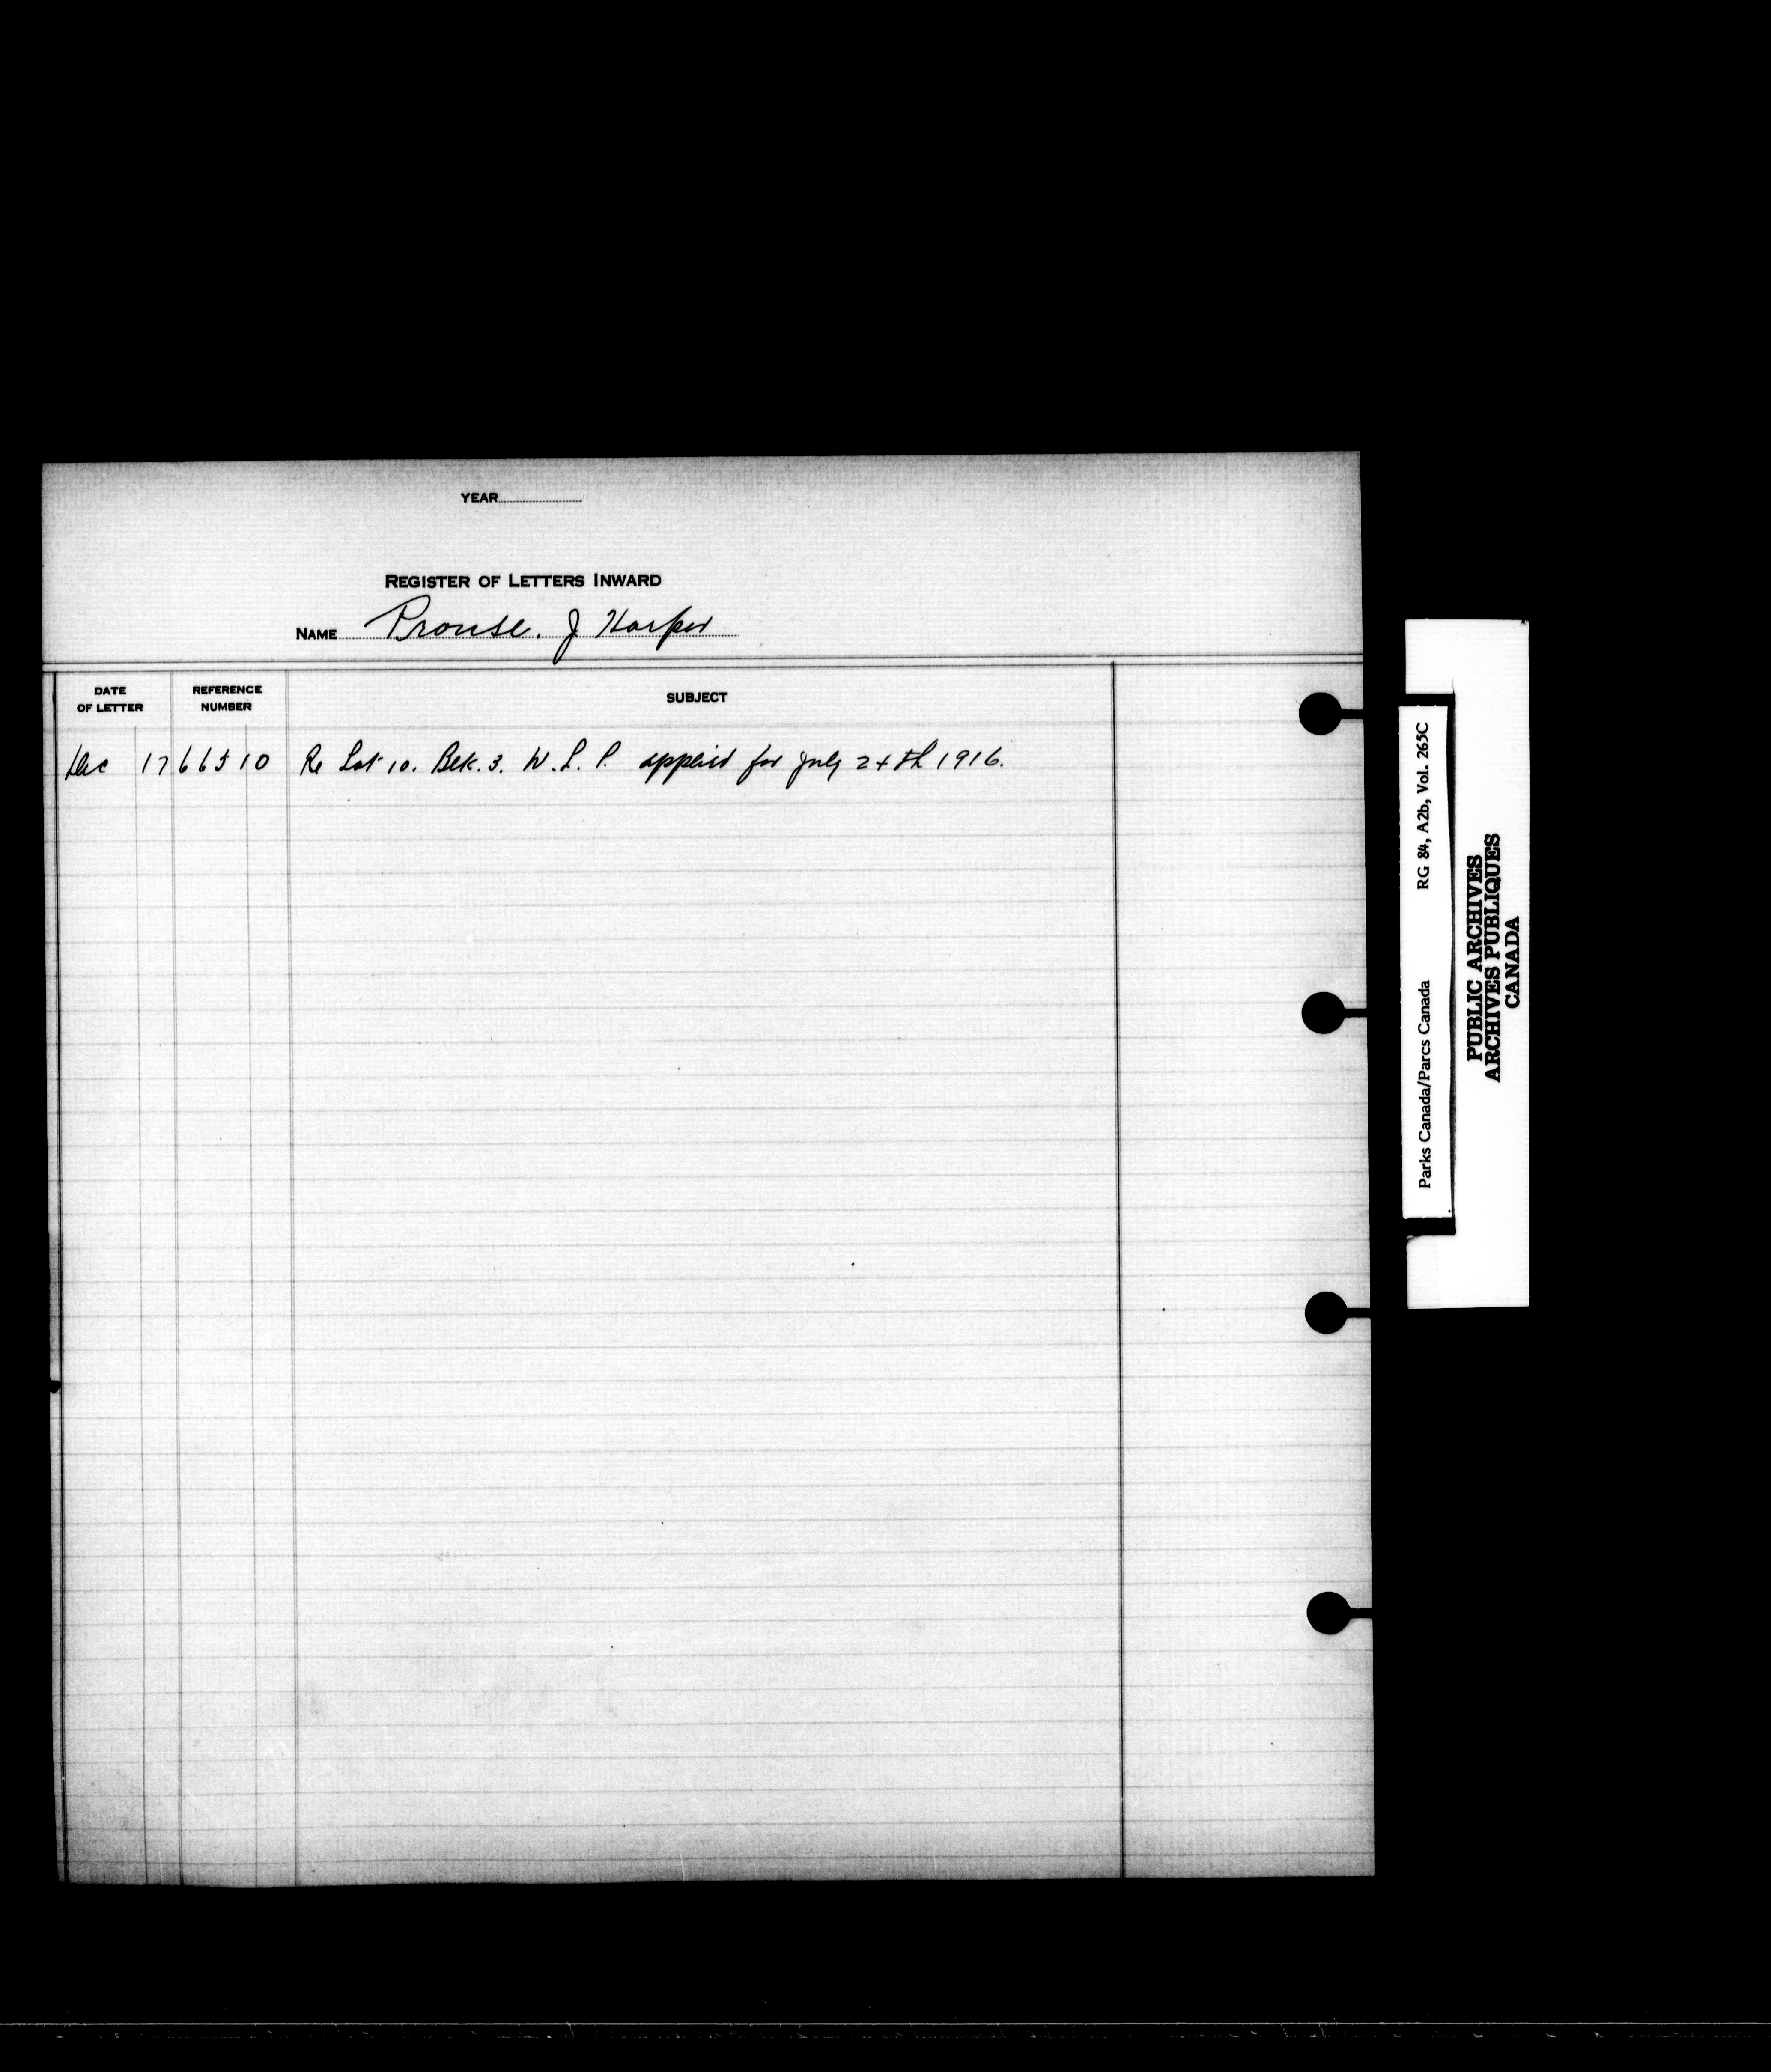 YEAR
REGISTER OF LETTERS INWARD
NAME Prouse. J Harper
DATE OF LETTER
REFERENCE NUMBER
SUBJECT
Dec 17 66510 Re Lot 10. Blk. 3. W.L.P. applied for July 24th 1916.
Parks Canada/Parcs Canada RG 84, A2b, Vol. 265C
PUBLIC ARCHIVES
ARCHIVES PUBLIQUES
CANADA